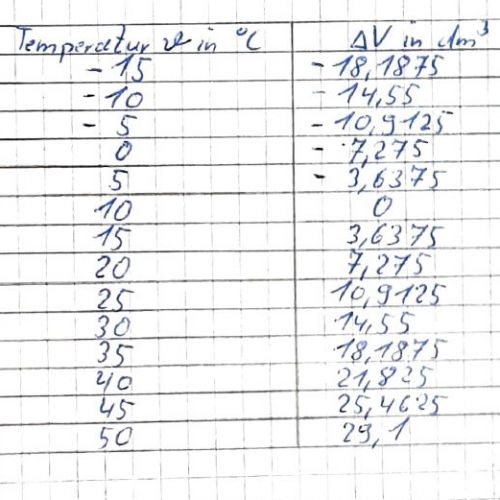 Temperatur ϑ in °C ΔV in dm³
- 15 - 18,1875
- 10 - 14,55
- 5 - 10,9125
0 - 7,275
5 - 3,6375
10 0
15 3,6375
20 7,275
25 10,9125
30 14,55
35 18,1875
40 21,825
45 25,4625
50 29,1